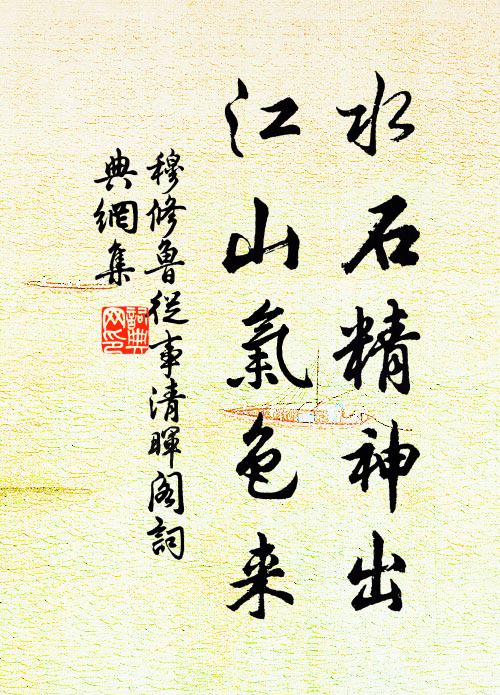 水石精神出
江山氣色来
穆修魯從事清暉閣詞
典網集
詞典
网印